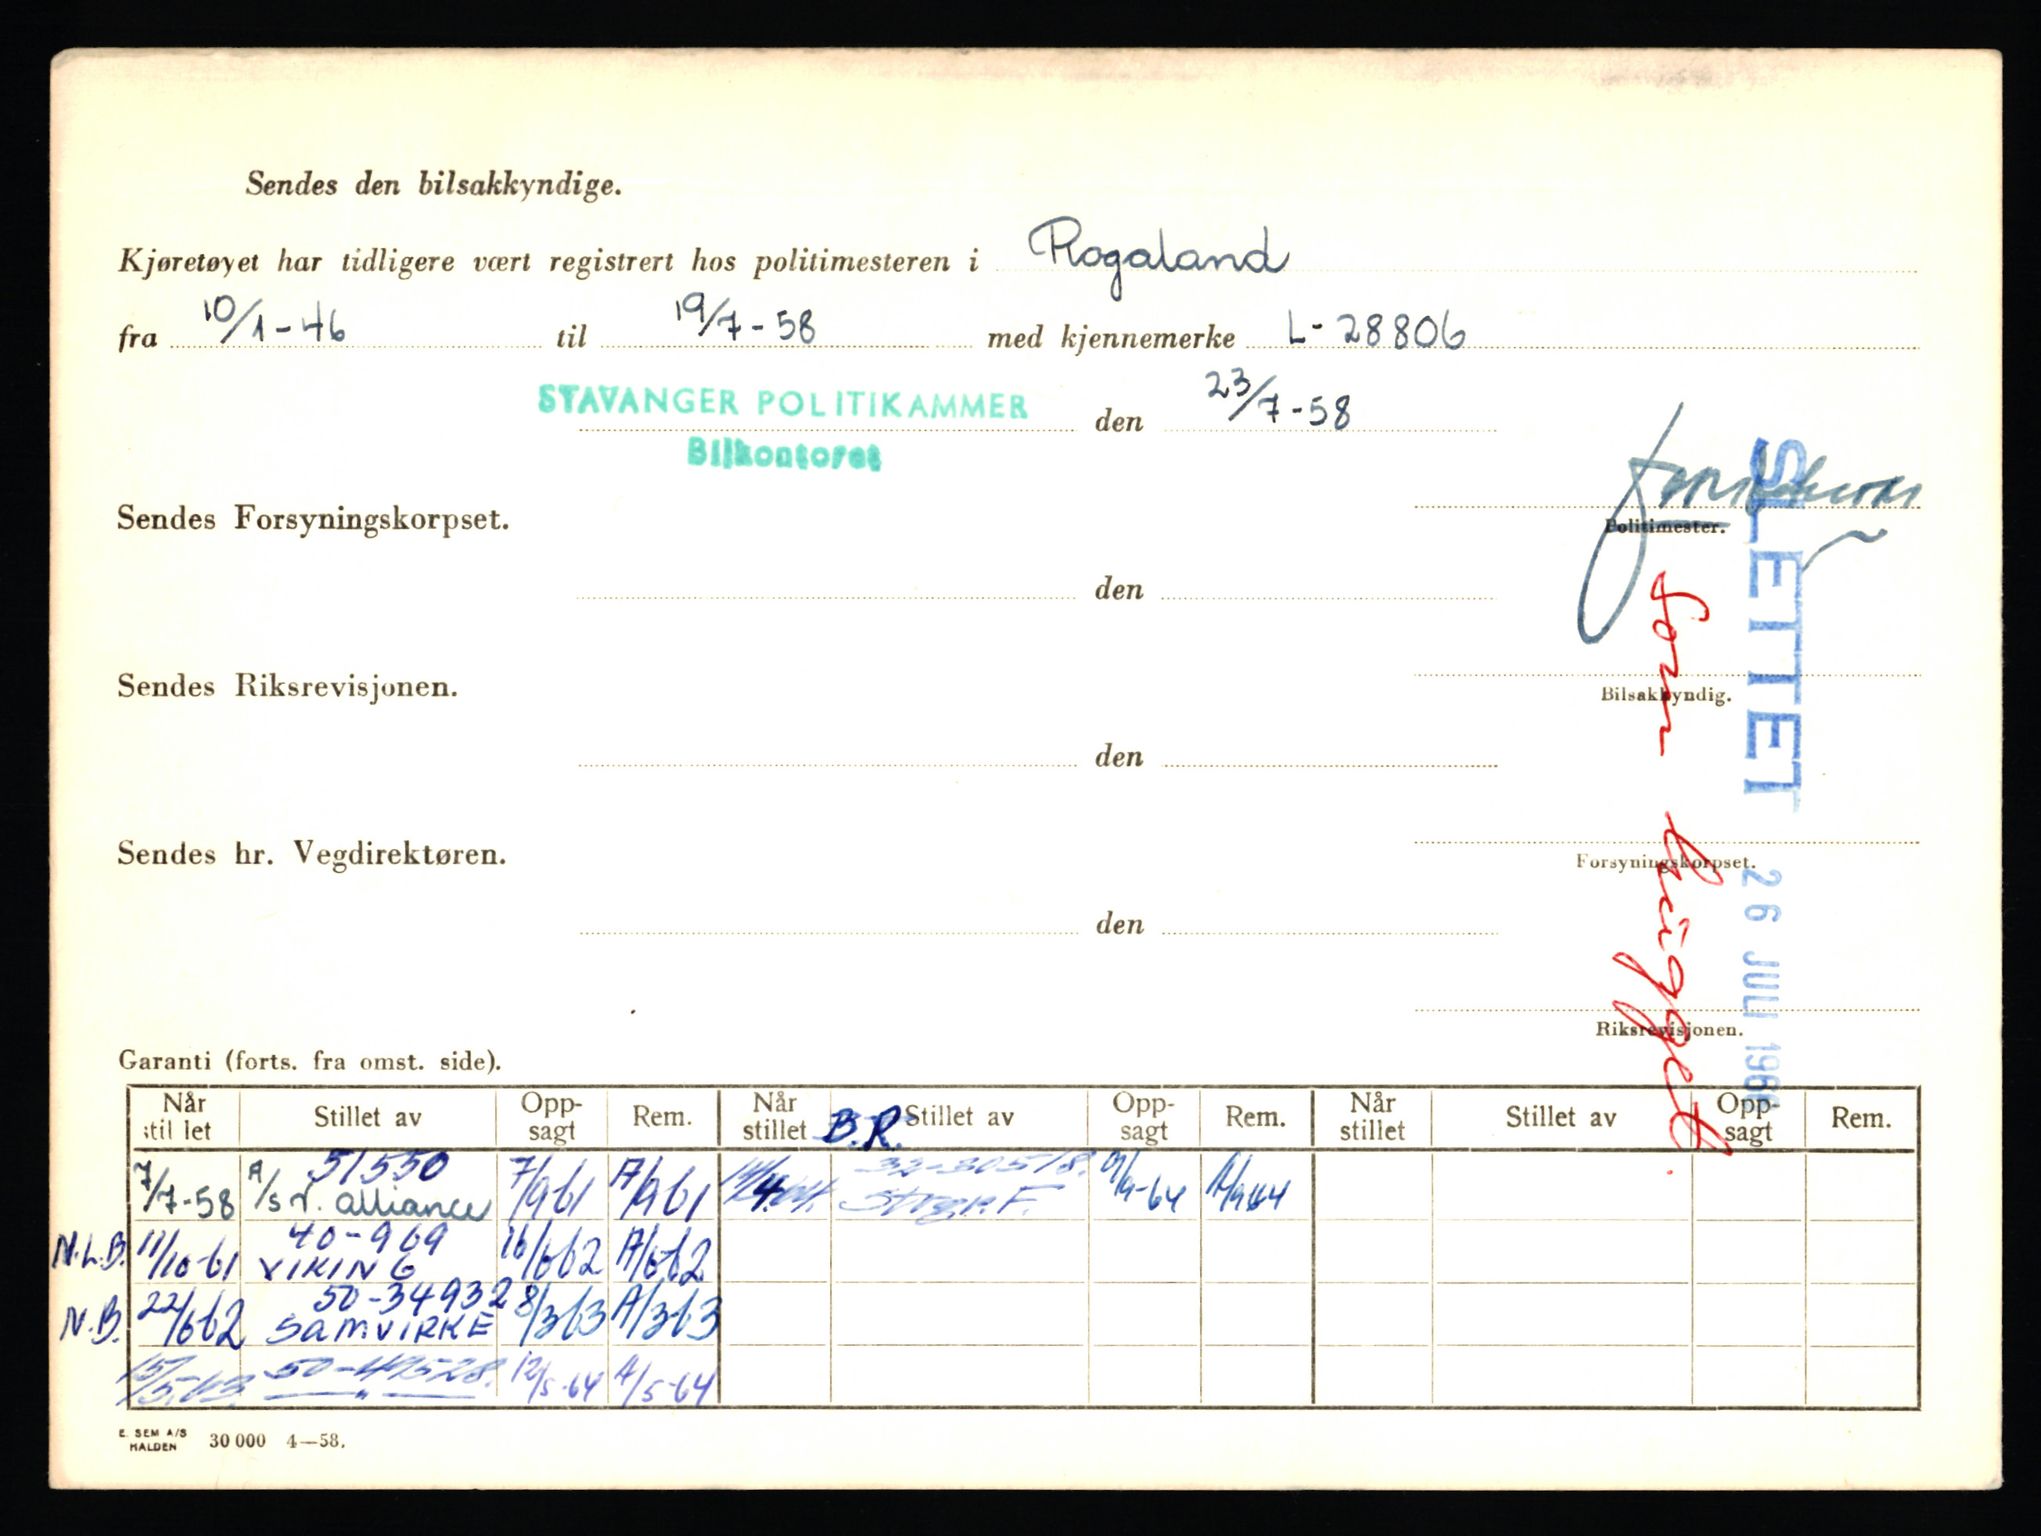 Sendes den bilsakkyndige.
Kjøretøyet har tidligere vært registrert hos politimesteren i Rogaland
fra 10/1-46 til 19/7-58 med kjennemerke L-28806
STAVANGER POLITIKAMMER den 23/7-58
Bilkontoret
Sendes Forsyningskorpset.
Politimester.
den
Sendes Riksrevisjonen.
Bilsakkyndig.
den
Sendes hr. Vegdirektøren.
Forsyningskorpset.
den
Riksrevisjonen.
SLETTET 26 JULI 196
Som hugget.
Garanti (forts. fra omst. side).
Når stillet Stillet av Opp-sagt Rem. Når stillet B.R. Stillet av Opp-sagt Rem. Når stillet Stillet av Opp-sagt Rem.
7/7-58 51550 A/S N. alliance 7/9 61 A/9 61 32-30518. 9/9-64
N.L.B. 11/10-61 40-969 VIKING 16/6 62 A/6-62
N.B. 22/6 62 50-34932 SAMVIRKE 8/3 63 A/3 63
15/5.63. 50-49528. — " — 12/5-64 A/5-64
E. SEM A/S
HALDEN 30 000 4—58.